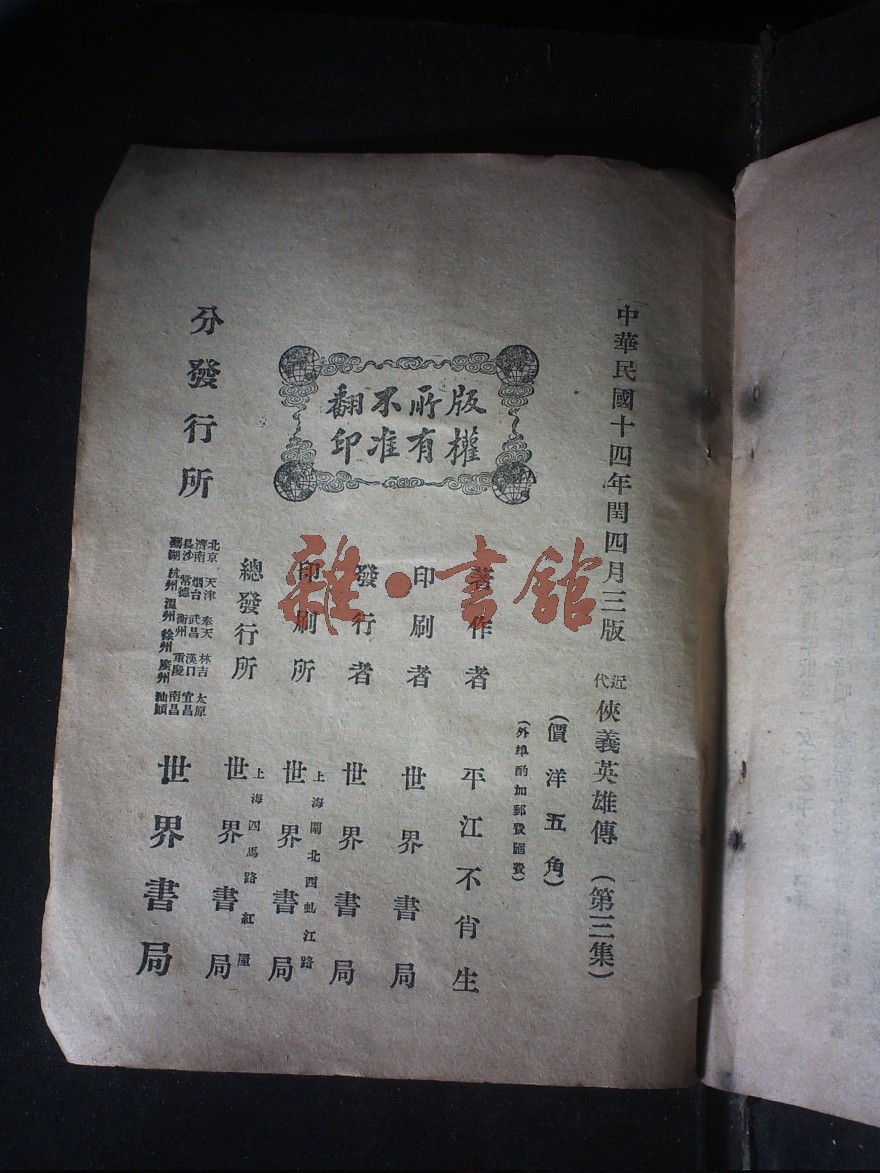 中華民國十四年閏四月三版
近代 俠義英雄傳 (第三集)
(價洋五角)
(外埠酌加郵費匯費)
版權所有 不准翻印
著作者 平江不肖生
印刷者 世界書局
發行者 世界書局
印刷所 上海閘北西虬江路 世界書局
總發行所 上海四馬路紅屋 世界書局
分發行所
北京 天津 奉天 吉林 太原
濟南 烟台 武昌 漢口 宜昌
長沙 常德 衡州 重慶 南昌
蕪湖 杭州 溫州 徐州 廣州 汕頭
世界書局
雜·書館